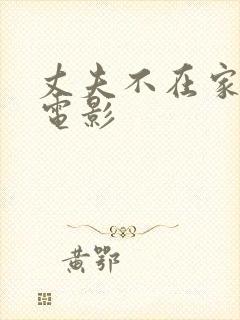 丈夫不在家
電影
黃鄂